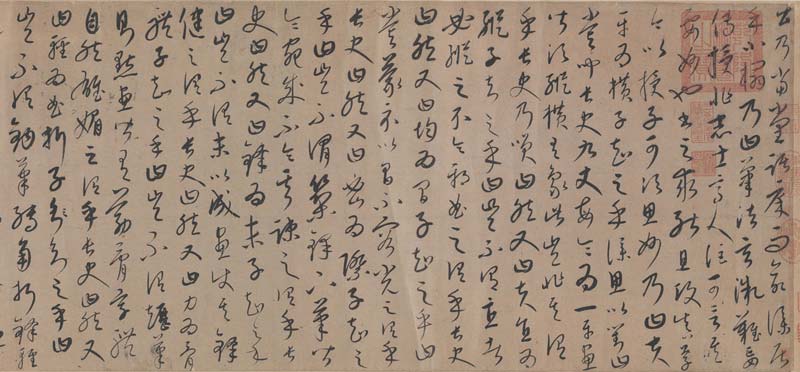 公乃當堂踞床而命僕居
乎小榻乃曰筆法玄微難妄
傳授非志士高人詎可言其
要妙也書之求能且攻真草
今以授子可須思妙乃曰夫
平為橫子知之乎僕思以對曰
嘗聞長史九丈每令為一平畫
皆須縱橫有象此豈非其謂
乎長史乃笑曰然又曰夫直為
縱子知之乎曰豈不謂直者
必縱之不令邪曲之謂乎長史
曰然又曰均為間子知之乎曰
嘗蒙示以間不容光之謂乎
長史曰然又曰密為際子知之
乎曰豈不謂築鋒下筆皆
令宛成不令其疎之謂乎長
史曰然又曰鋒為末子知之乎
曰豈不謂末以成畫使其鋒
健之謂乎長史曰然又曰力為骨
體子知之乎曰豈不謂趯筆
則點畫皆有筋骨字體
自然雄媚之謂乎長史曰然又
曰輕為曲折子知之乎曰
豈不謂鉤筆轉角折鋒輕